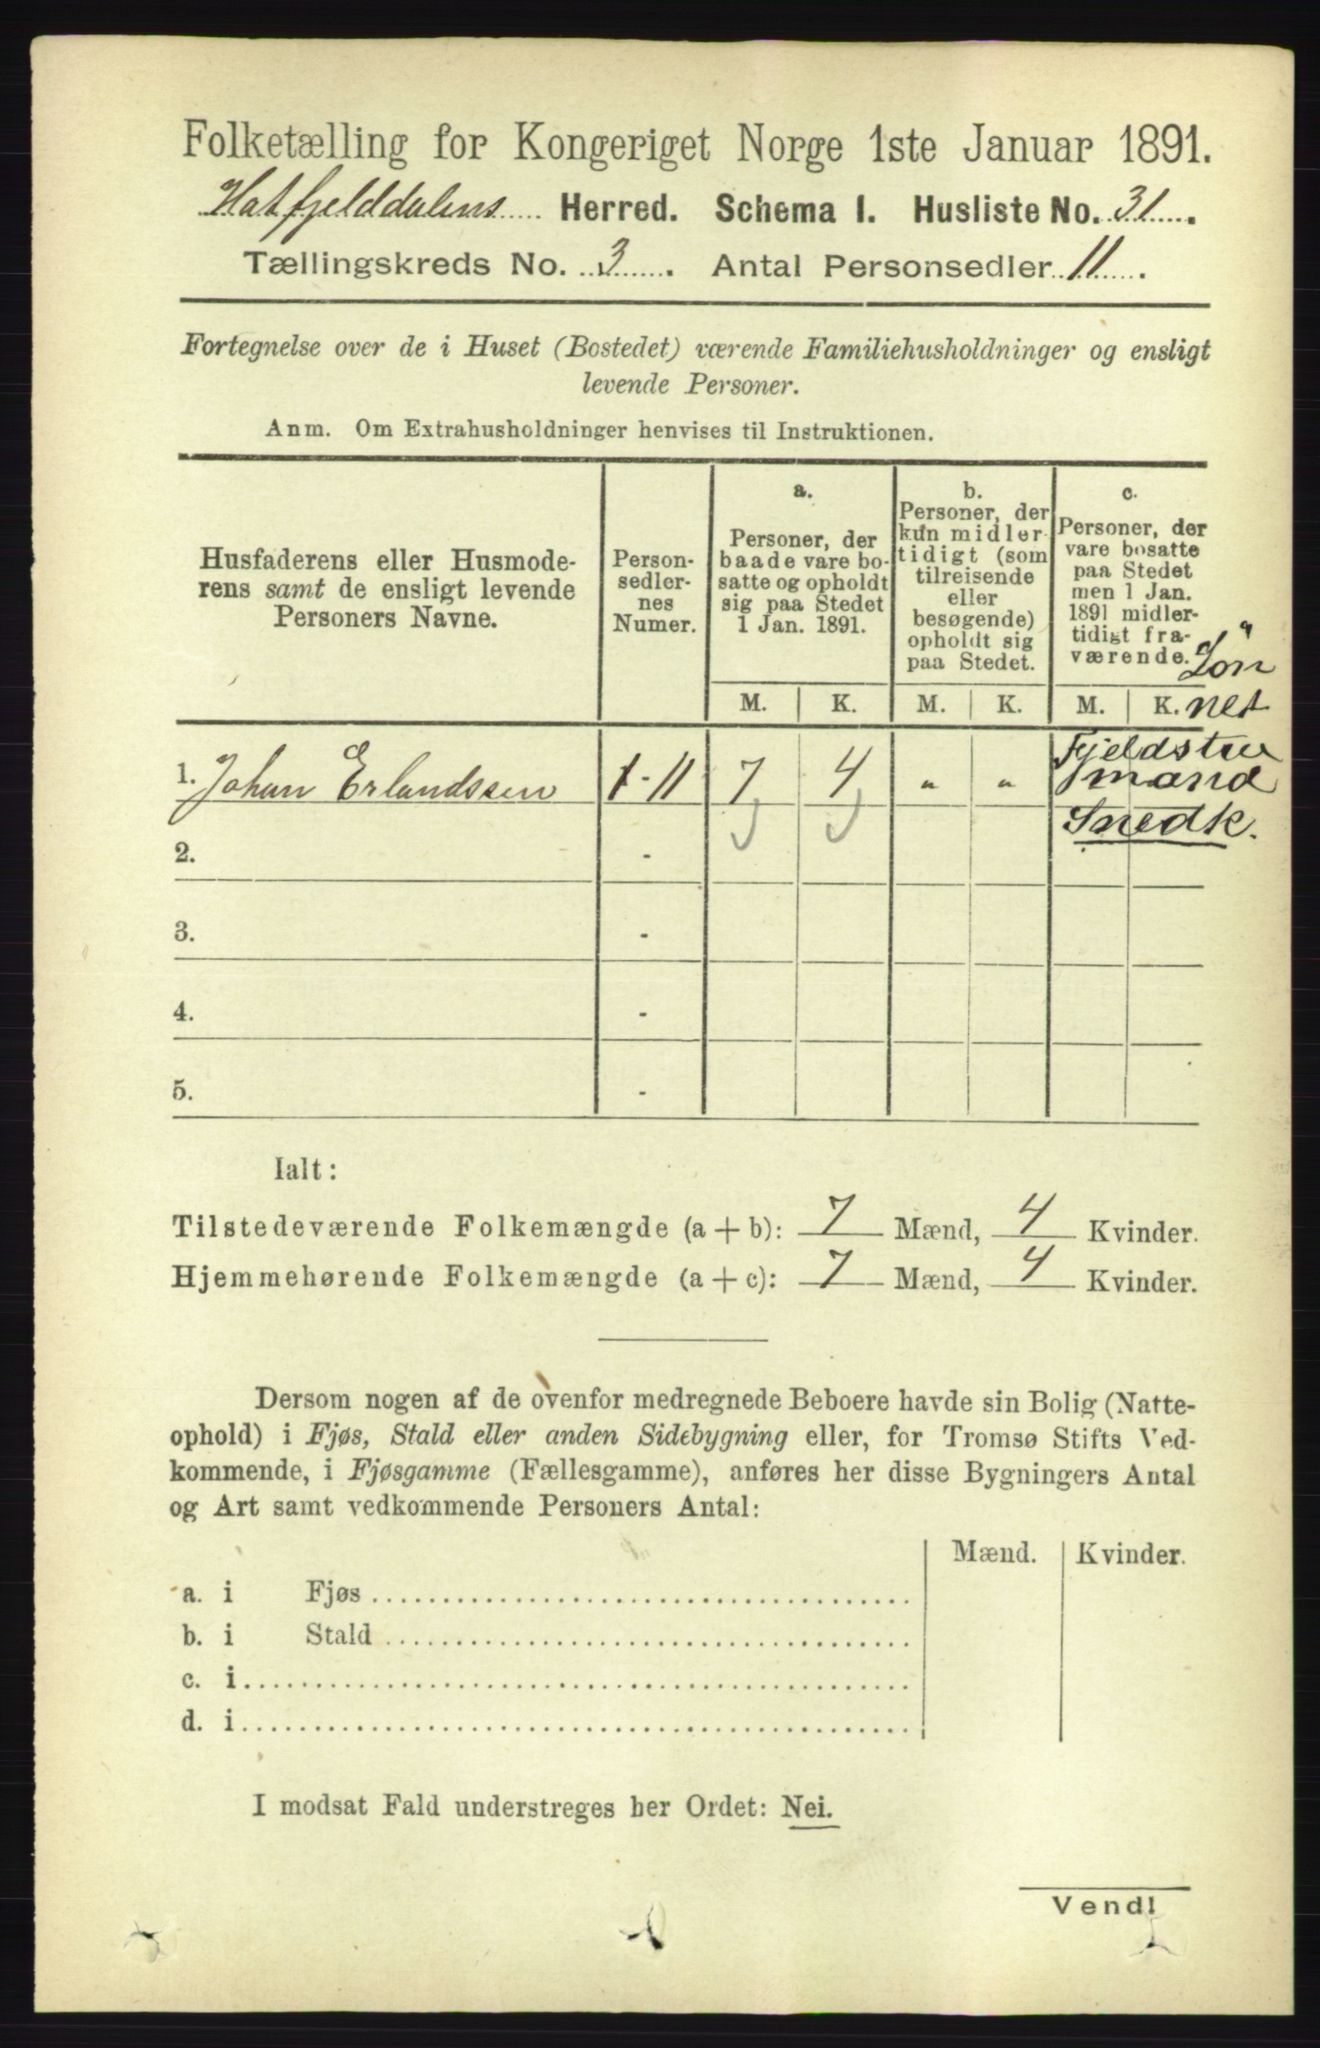 Folketælling for Kongeriget Norge 1ste Januar 1891.
Hatfjelddalens Herred. Schema I. Husliste No. 31.
Tællingskreds No. 3. Antal Personsedler 11.
Fortegnelse over de i Huset (Bostedet) værende Familiehusholdninger og ensligt
levende Personer.
Anm. Om Extrahusholdninger henvises til Instruktionen.
Husfaderens eller Husmode-
rens samt de ensligt levende
Personers Navne.
Person-
sedler-
nes
Numer.
a.
Personer, der
baade vare bo-
satte og opholdt
sig paa Stedet
1 Jan. 1891.
b.
Personer, der
kun midler-
tidigt (som
tilreisende
eller
besøgende)
opholdt sig
paa Stedet.
c.
Personer, der
vare bosatte
paa Stedet
men 1 Jan.
1891 midler-
tidigt fra-
værende.
Lön
net
M. K. M. K. M. K.
Fjeldstue
mand
Snedk.
1. Johan Erlandssen 1-11 7 4 " "
2. -
3. -
4. -
5. -
Ialt:
Tilstedeværende Folkemængde (a + b): 7 Mænd, 4 Kvinder.
Hjemmehørende Folkemængde (a + c): 7 Mænd, 4 Kvinder.
Dersom nogen af de ovenfor medregnede Beboere havde sin Bolig (Natte-
ophold) i Fjøs, Stald eller anden Sidebygning eller, for Tromsø Stifts Ved-
kommende, i Fjøsgamme (Fællesgamme), anføres her disse Bygningers Antal
og Art samt vedkommende Personers Antal:
Mænd. Kvinder.
a. i Fjøs
b. i Stald
c. i
d. i
I modsat Fald understreges her Ordet: Nei.
Vend!